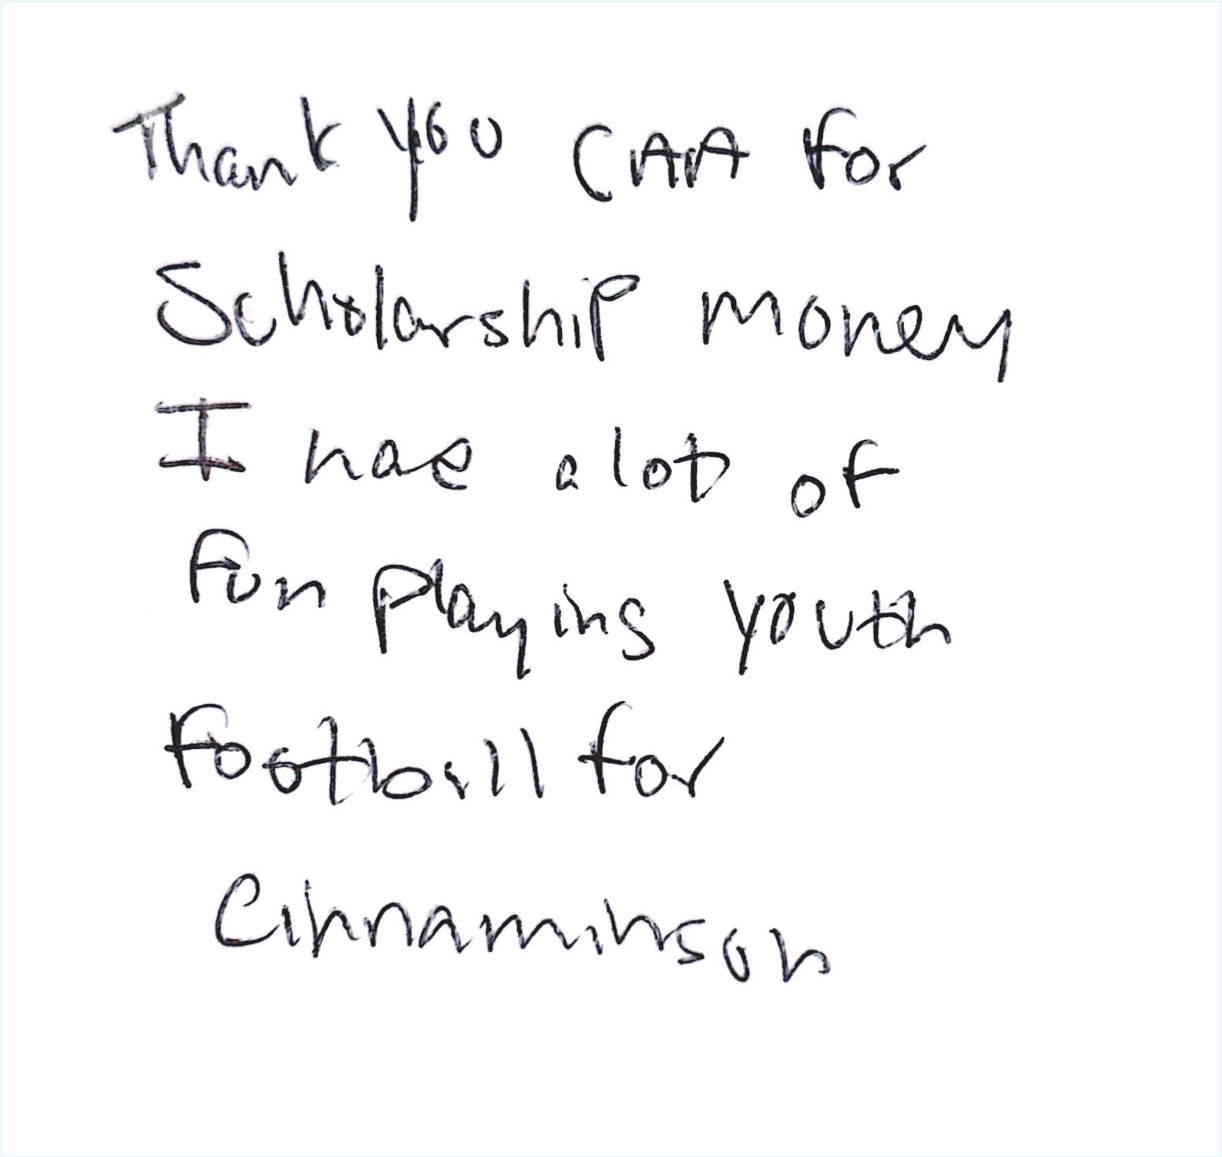 Thank you CAA for
Scholarship money
I had a lot of
fun playing youth
football for
Cinnaminson